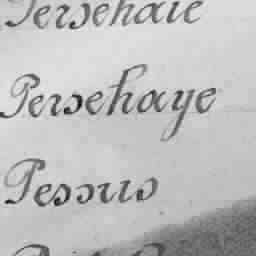 Persehaie
Persehaye
Pessus